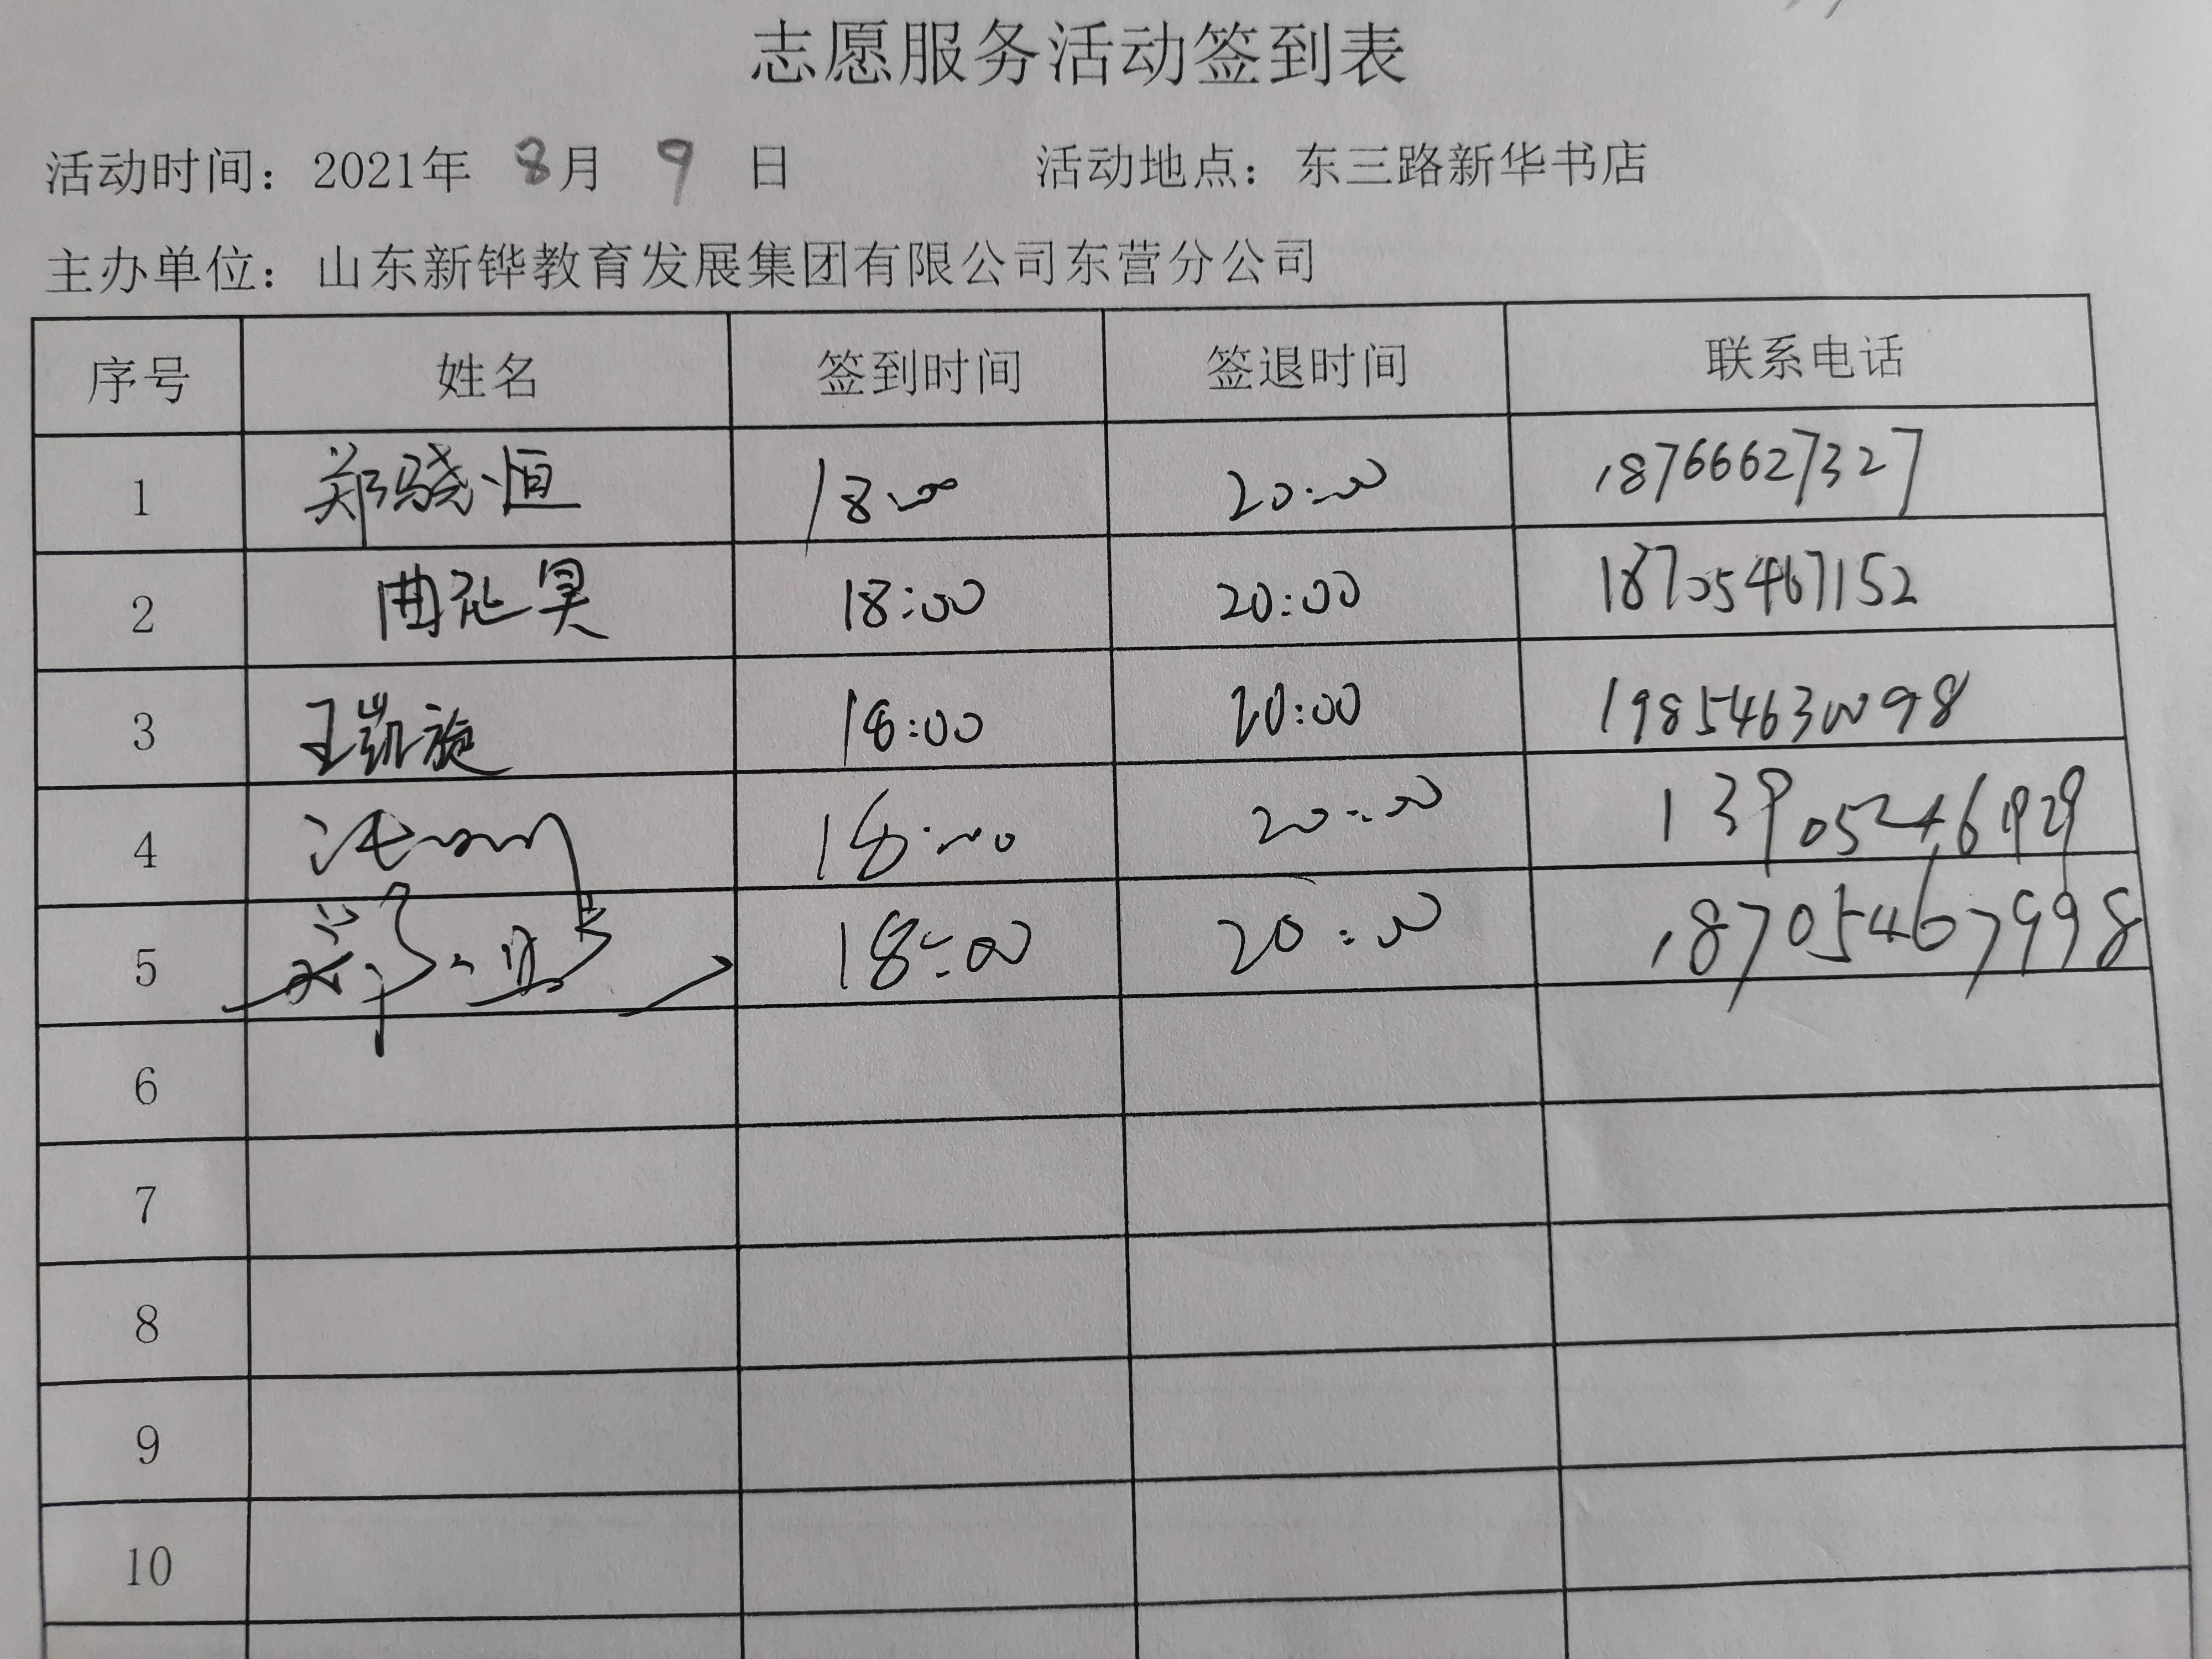 志愿服务活动签到表
活动时间：2021年 8月 9 日 活动地点：东三路新华书店
主办单位：山东新铧教育发展集团有限公司东营分公司
序号 姓名 签到时间 签退时间 联系电话
1 郑骁恒 18:00 20:00 18766627327
2 曲 昊 18:00 20:00 18705467152
3 王凯旋 18:00 20:00 19854630098
4 18:00 20:00
5 18:00 20:00 18705467998
6
7
8
9
10